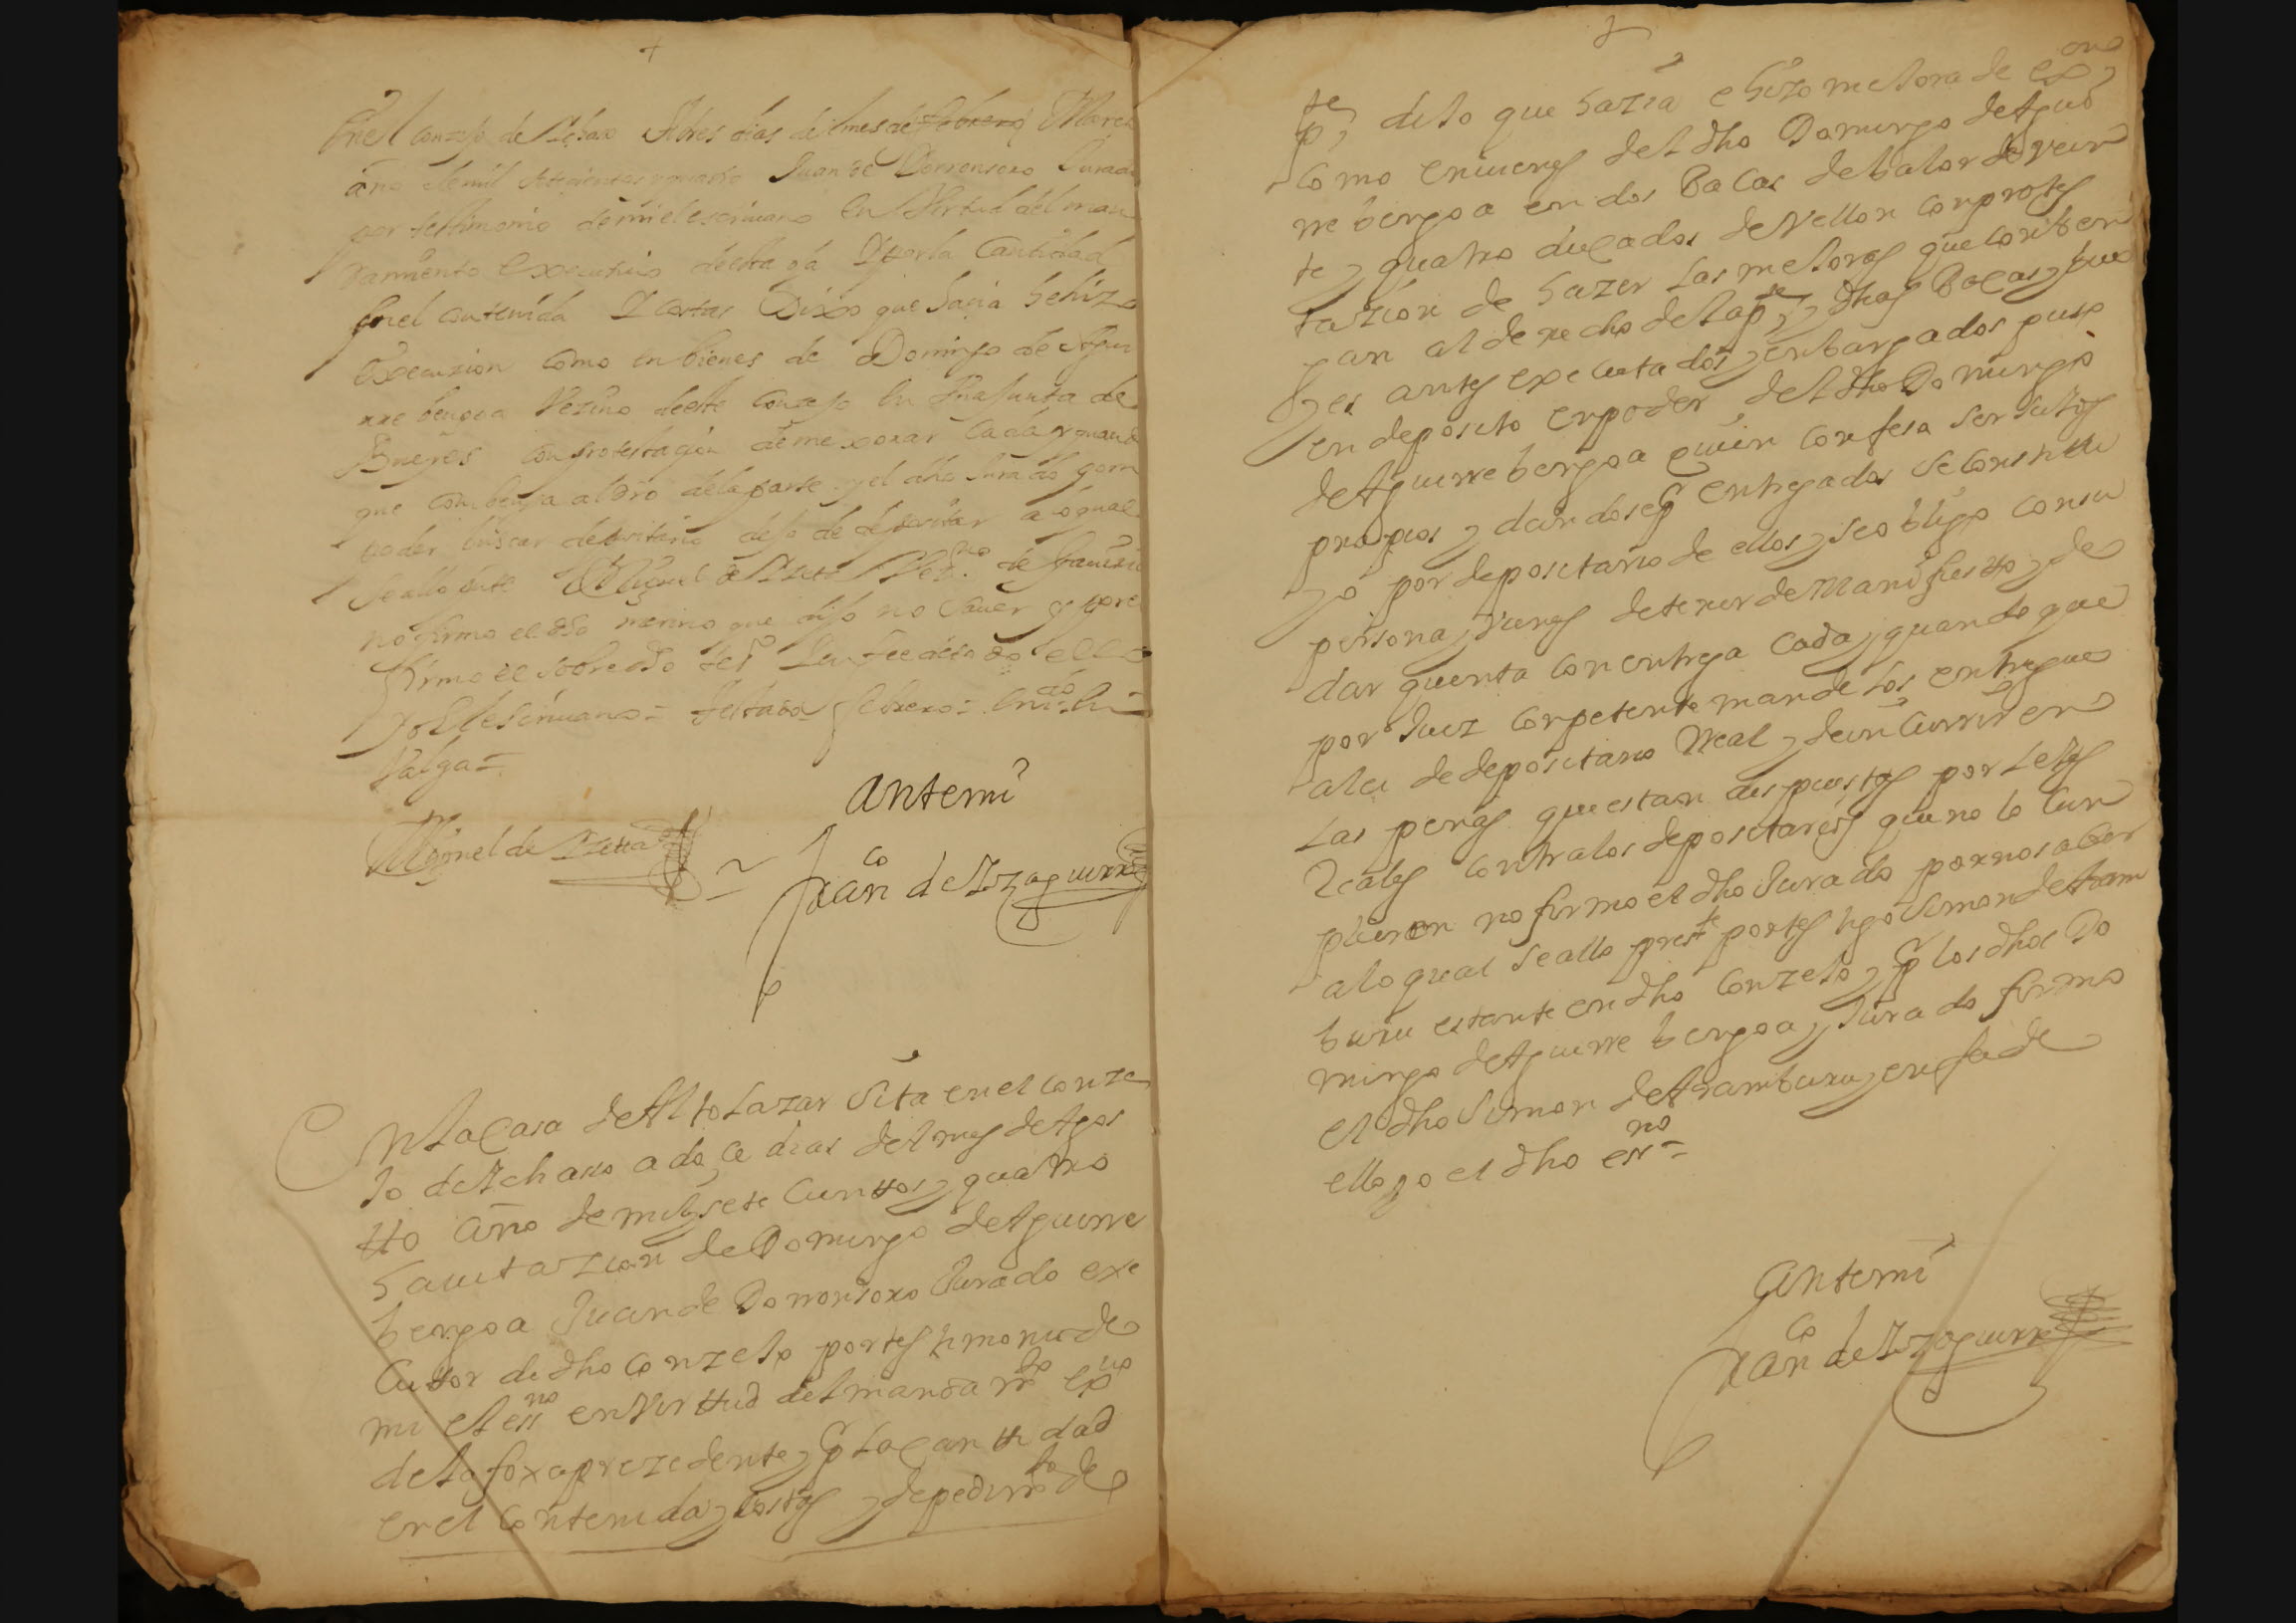 +
En el conzejo de Ichaso A tres dias del mes de febrero Marzo
año de mil setezientos y quatro Juan de Donronsoro Jurado
por testimonio de mi el escrivano En Virtud del man
damiento executivo desta ja Y por la Cantidad
en el contenida Y costas Dixo que hacia he hizo
execuzion como en bienes de Domingo de Aguir
rre bengoa Vezino deeste Conzejo En una Junta de
Bueyes con protestaçion de mexorar Cada y quando
que combenga al dro dela parte y el dho Jurado por no
poder buscar depositario dejo de depositar a lo qual
se allo ente Miguel de Yzeta Vezno de Gaviria
no firmo el dho merino que dijo no saver y por
firmo el sobre dho tesº En fee de todo ello
Yo El escrivano = testado febrero = 
Valga =
Antemi
Miguel de Yzetta
Franco de Yzaguirre
En la Casa de Alttolazar Sita en el conze
jo de Ichaso a doçe dias del mes de Agos
tto año de mil y sete cienttos y quatro
havitazion de Domingo de Aguirre
bengoa Juan de Donronsoro Jurado exe
cuttor de dho conzejo por testimonio de
mi el essno en virttud del mandamto exvo
de la foxa prezedente y por la canttidad
en el contenida y costas y de pedimto de
pte, dijo que hazia e hizo mejora de exon
como en vienes del dho Domingo de Agui
rre bengoa en dos Bacas de balor de vein
te y quatro ducados de Vellon con protes
tazion de hazer las mejoras que conben
gan al derecho de la pte y dhas Bacas y bue
yes antes executados y enbargados puso
en deposito en poder del dho Domingo
de Aguirre bengoa quien confesa ser suios
propios y dandose por entregados se constitu
yo por depositario de ellos y se obligo con su
persona y vienes de tener de Manifiestto y de
dar quenta con entrega cada y quando que
por Juez conpetente mande los entregue
a lei de depositario Real y de in Currir en
las penas que estan dispuestas por leyes
Reales contra los depositarios que no lo cun
plieren no firmo el dho Jurado por no saber
a lo qual se allo preste por testigo Simon de Aram
buru estante en dho conzejo y por los dhos Do
mingo de Aguirre bengoa y Jurado firmo
el dho Simon de Aramburu y en fe de
ello yo el dho essno =
Antemi
Franco de Yzaguirre